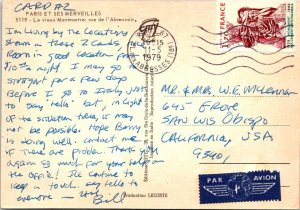 CARD #2
PARIS ET SES MERVEILLES
5119 - Le vieux Montmartre: rue de l'Abreuvoir.
I'm living by the locations
shown in these 2 cards,
Room in good location for
$10.00 night. I may go in
straight for a few days
Before I go to Italy just
to say "hello" but, in light
of the situation there, it may
not be possible. Hope Benny
is doing well. contact me
if there are problems. Thank you
again so much for your help at
the office! I'll continue to
keep in touch. Say hello to
everyone — Yrs
Bill
15
1979
R. DES ABBESSES (18E)
FRANCE
Mr. & Mrs. W.E. McLennan
645 Grove
San Luis Obispo
California, USA
93401
PAR AVION
Production LECONTE